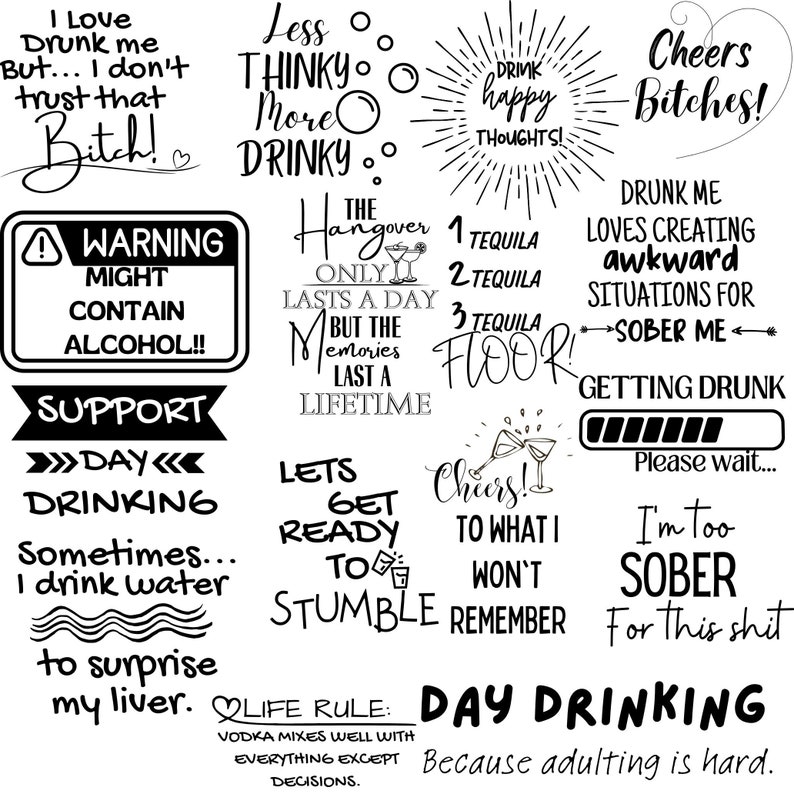 I Love
Drunk me
But... I don't
trust that
Bitch!
Less
THINKY
More
DRINKY
DRINK
happy
THOUGHTS!
Cheers
Bitches!
WARNING
MIGHT
CONTAIN
ALCOHOL!!
THE
Hangover
ONLY
LASTS A DAY
BUT THE
Memories
LAST A
LIFETIME
1 TEQUILA
2 TEQUILA
3 TEQUILA
FLOOR!
DRUNK ME
LOVES CREATING
awkward
SITUATIONS FOR
SOBER ME
SUPPORT
DAY
DRINKING
GETTING DRUNK
Please wait...
LETS
GET
READY
TO
STUMBLE
Cheers!
TO WHAT I
WON'T
REMEMBER
I'm too
SOBER
For this shit
Sometimes...
I drink water
to surprise
my liver.
LIFE RULE:
VODKA MIXES WELL WITH
EVERYTHING EXCEPT
DECISIONS.
DAY DRINKING
Because adulting is hard.